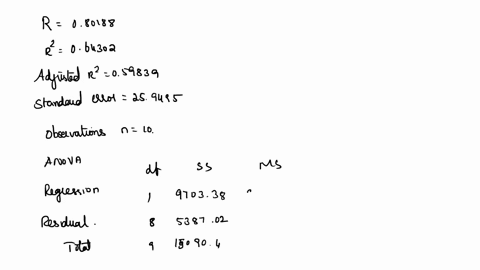 R = 0.80188
R² = 0.64302
Adjusted R² = 0.59839
Standard error = 25.9495
Observations n = 10.
ANOVA
df SS MS
Regression 1 9703.38
Residual. 8 5387.02
Total 9 15090.4